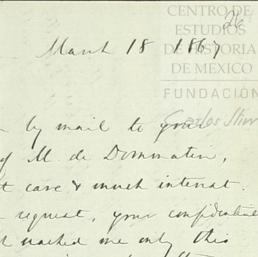 CENTRO DE
ESTUDIOS
DE HISTORIA
DE MEXICO
FUNDACIÓN
26
March 18 1867
by mail to your
of M. de Dominatin,
care & much interest.
request, your confidential
reached me only this